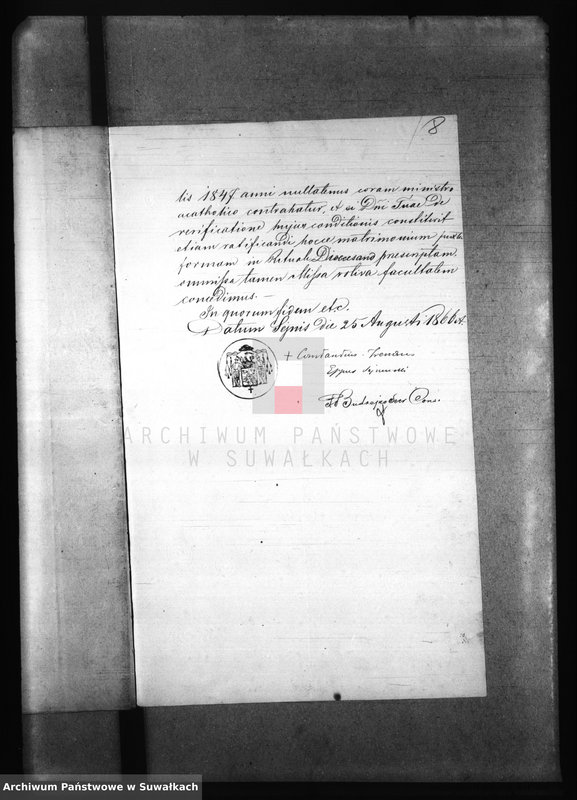 8
tis 1847 anni nullatenus coram ministro
acatholico contrahatur, et si Dni Tuae de
verificatione hujus conditionis constiterit
etiam ratificandi hocce matrimonium juxta
formam in Rituali Dioecesano praescriptam
ommissa tamen Missa votiva facultatem
concedimus. —
In quorum fidem etc.
Datum Sejnis die 25 Augusti 1866 A.
+ Constantius Ireneus
Eppus Sejnensis
ARCHIWUM PAŃSTWOWE
W SUWAŁKACH
Archiwum Państwowe w Suwałkach